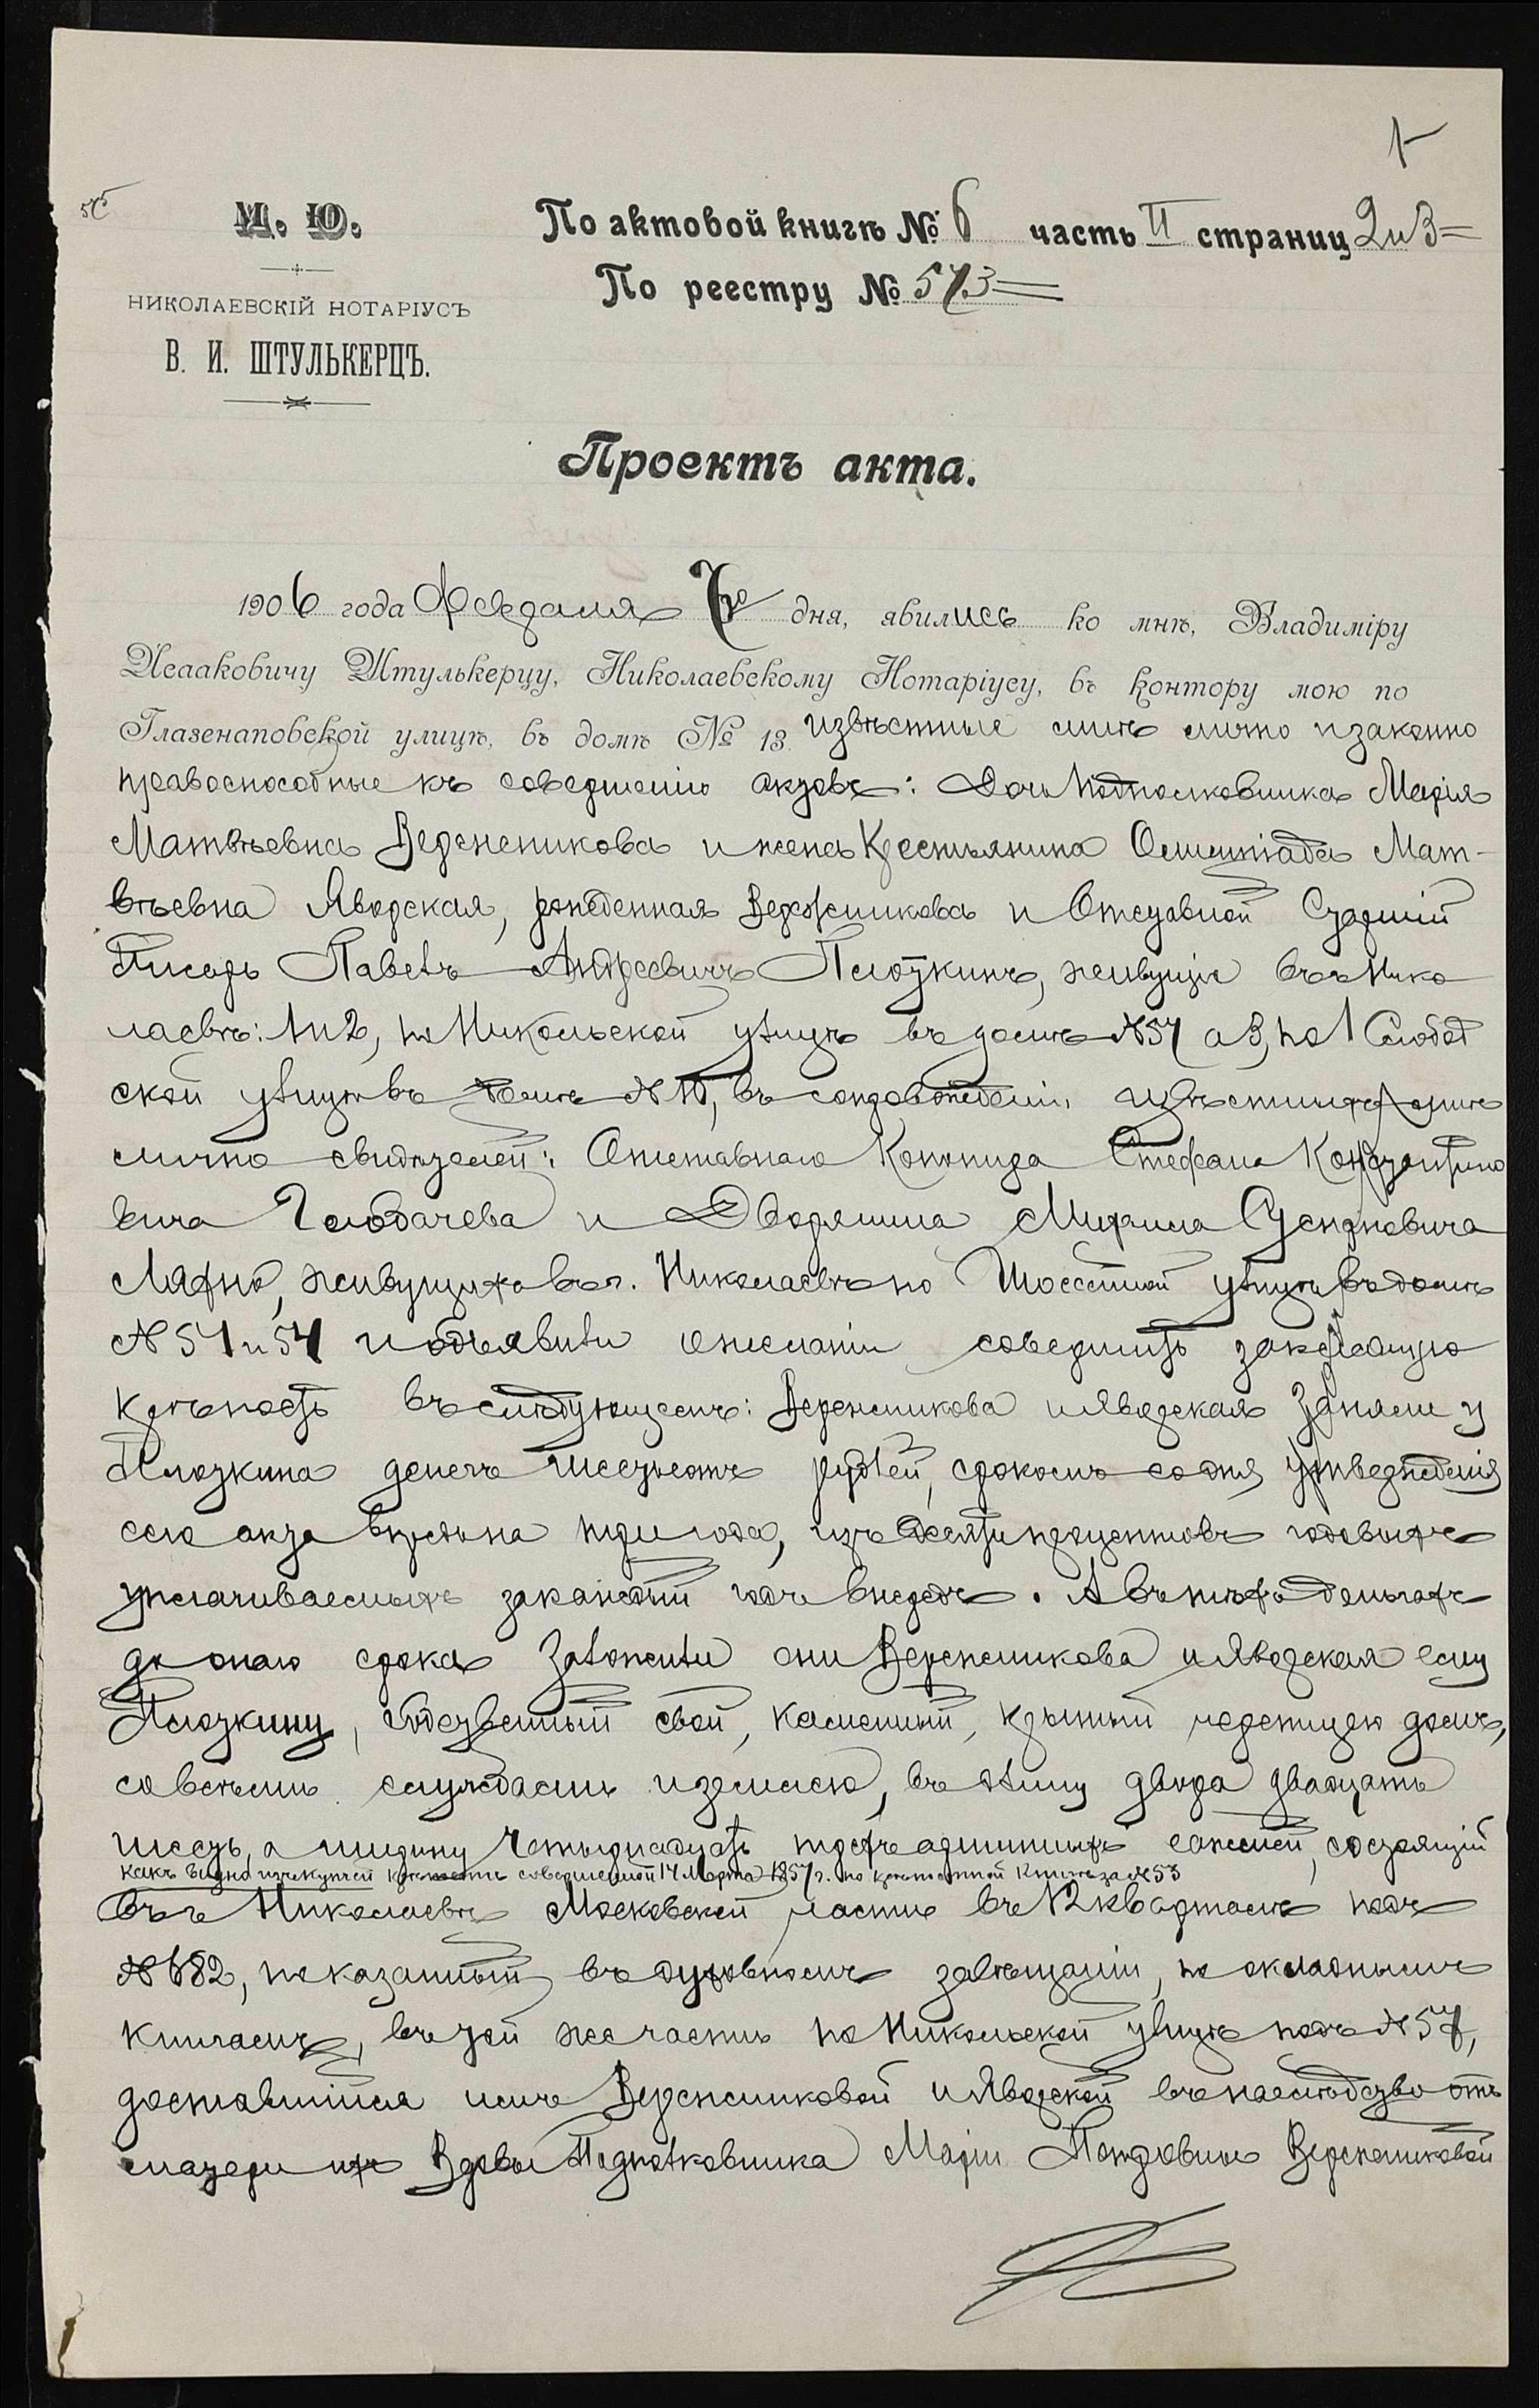 1
М. Ю.
НИКОЛАЕВСКІЙ НОТАРІУСЪ
В. И. ШТУЛЬКЕРЦЪ.
По актовой книгѣ № 6 часть II страниц 2 и 3
По реестру № 573
Проектъ акта.
1906 года Февраля дня, явились ко мнѣ, Владиміру
Исааковичу Штулькерцу, Николаевскому Нотаріусу, въ контору мою по
Глазенаповской улицѣ, въ домѣ № 13. извѣстные мнѣ лично и законно
правоспособные къ совершенію актовъ: Дочь Подполковника Марія
Матвѣевна Веременикова и жена Крестьянина Олимпіада Мат-
вѣевна Яворская, рожденная Веременикова и Отставной Старшій
Писарь Павелъ Андреевичъ Плоткинъ, живущіе въ г. Нико
лаевѣ: 1 и 2, по Никольской улицѣ въ домѣ № 57 а 3, по 1 Слобод
ской улицѣ въ домѣ № 10, въ сопровожденіи извѣстныхъ мнѣ
лично свидѣтелей: Отставного Стефана Константино
вича и Дворянина Михаила
живущихъ въ г. Николаевѣ по Шоссейной улицѣ въ домѣ
№ 51 и 54 и объявили о желаніи совершить закладную
крѣпость въ слѣдующемъ: Веременикова и Яворская заняли у
Плоткина денегъ шестьсотъ рублей, срокомъ со дня утвержденія
сего акта впредь на три года, изъ десяти процентовъ годовыхъ
уплачиваемыхъ за каждый годъ впередъ. А въ тѣхъ деньгахъ
до онаго срока заложили они Веременикова и Яворская ему
Плоткину, собственный свой, каменный, крытый черепицею домъ,
со всѣми службами и землею, въ длину двора двадцать
шесть, а ширину четырнадцать трехъ аршинныхъ саженей, состоящій
какъ видно изъ купчей крѣпости совершенной 14 Марта 1857 г. по крѣпостной книгѣ за № 53
въ г. Николаевѣ Московской части въ 12 кварталѣ подъ
№ 682, показанный въ духовномъ завѣщаніи, по окладнымъ
книгамъ, въ той же части по Никольской улицѣ подъ № 57,
доставшійся имъ Верементиковой и Яворской въ наслѣдство отъ
матери ихъ Вдовы Подполковника Маріи Петровны Веременниковой